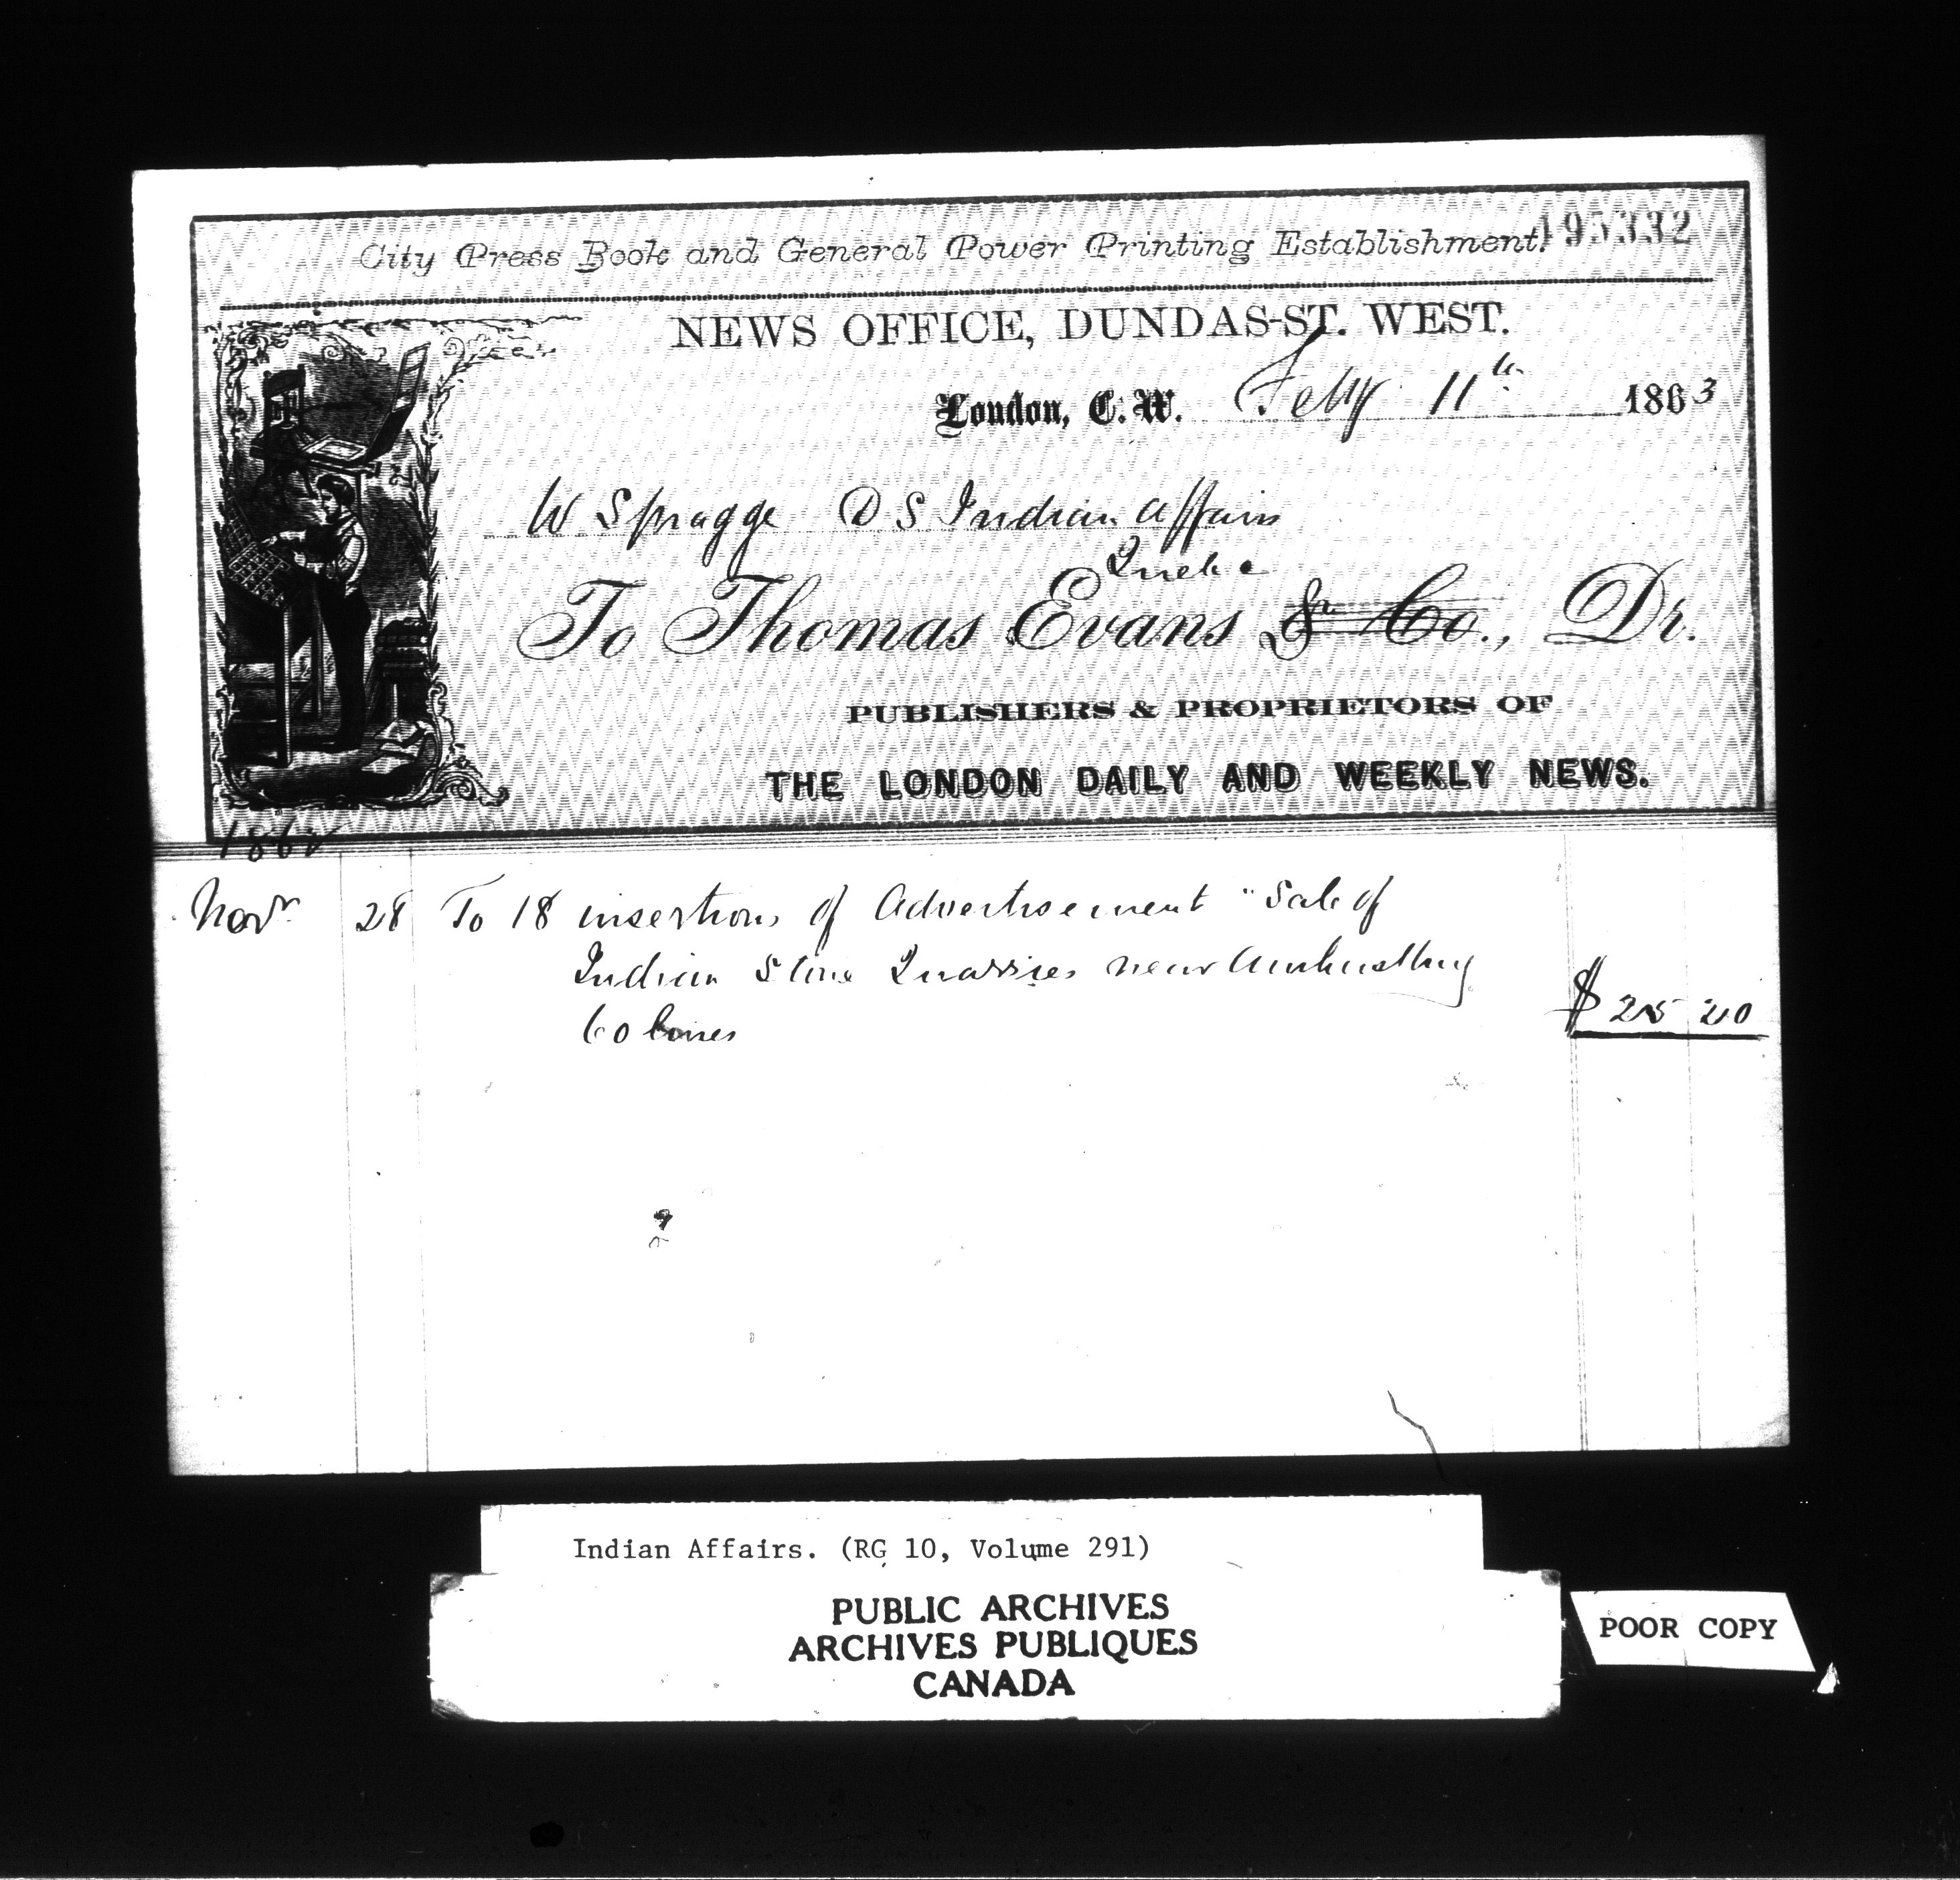 195332
City Press Book and General Power Printing Establishment.
NEWS OFFICE, DUNDAS-ST. WEST.
London, C. W. Feby 11th 1863
W Spragge D S Indian Affairs
Quebec
To Thomas Evans & Co., Dr.
PUBLISHERS & PROPRIETORS OF
THE LONDON DAILY AND WEEKLY NEWS.
1862
Novr 28 To 18 insertions of Advertisement "Sale of
Indian Stone Quarries near Amherstburg
60 lines $ 25 20
Indian Affairs. (RG 10, Volume 291)
PUBLIC ARCHIVES
ARCHIVES PUBLIQUES
CANADA
POOR COPY